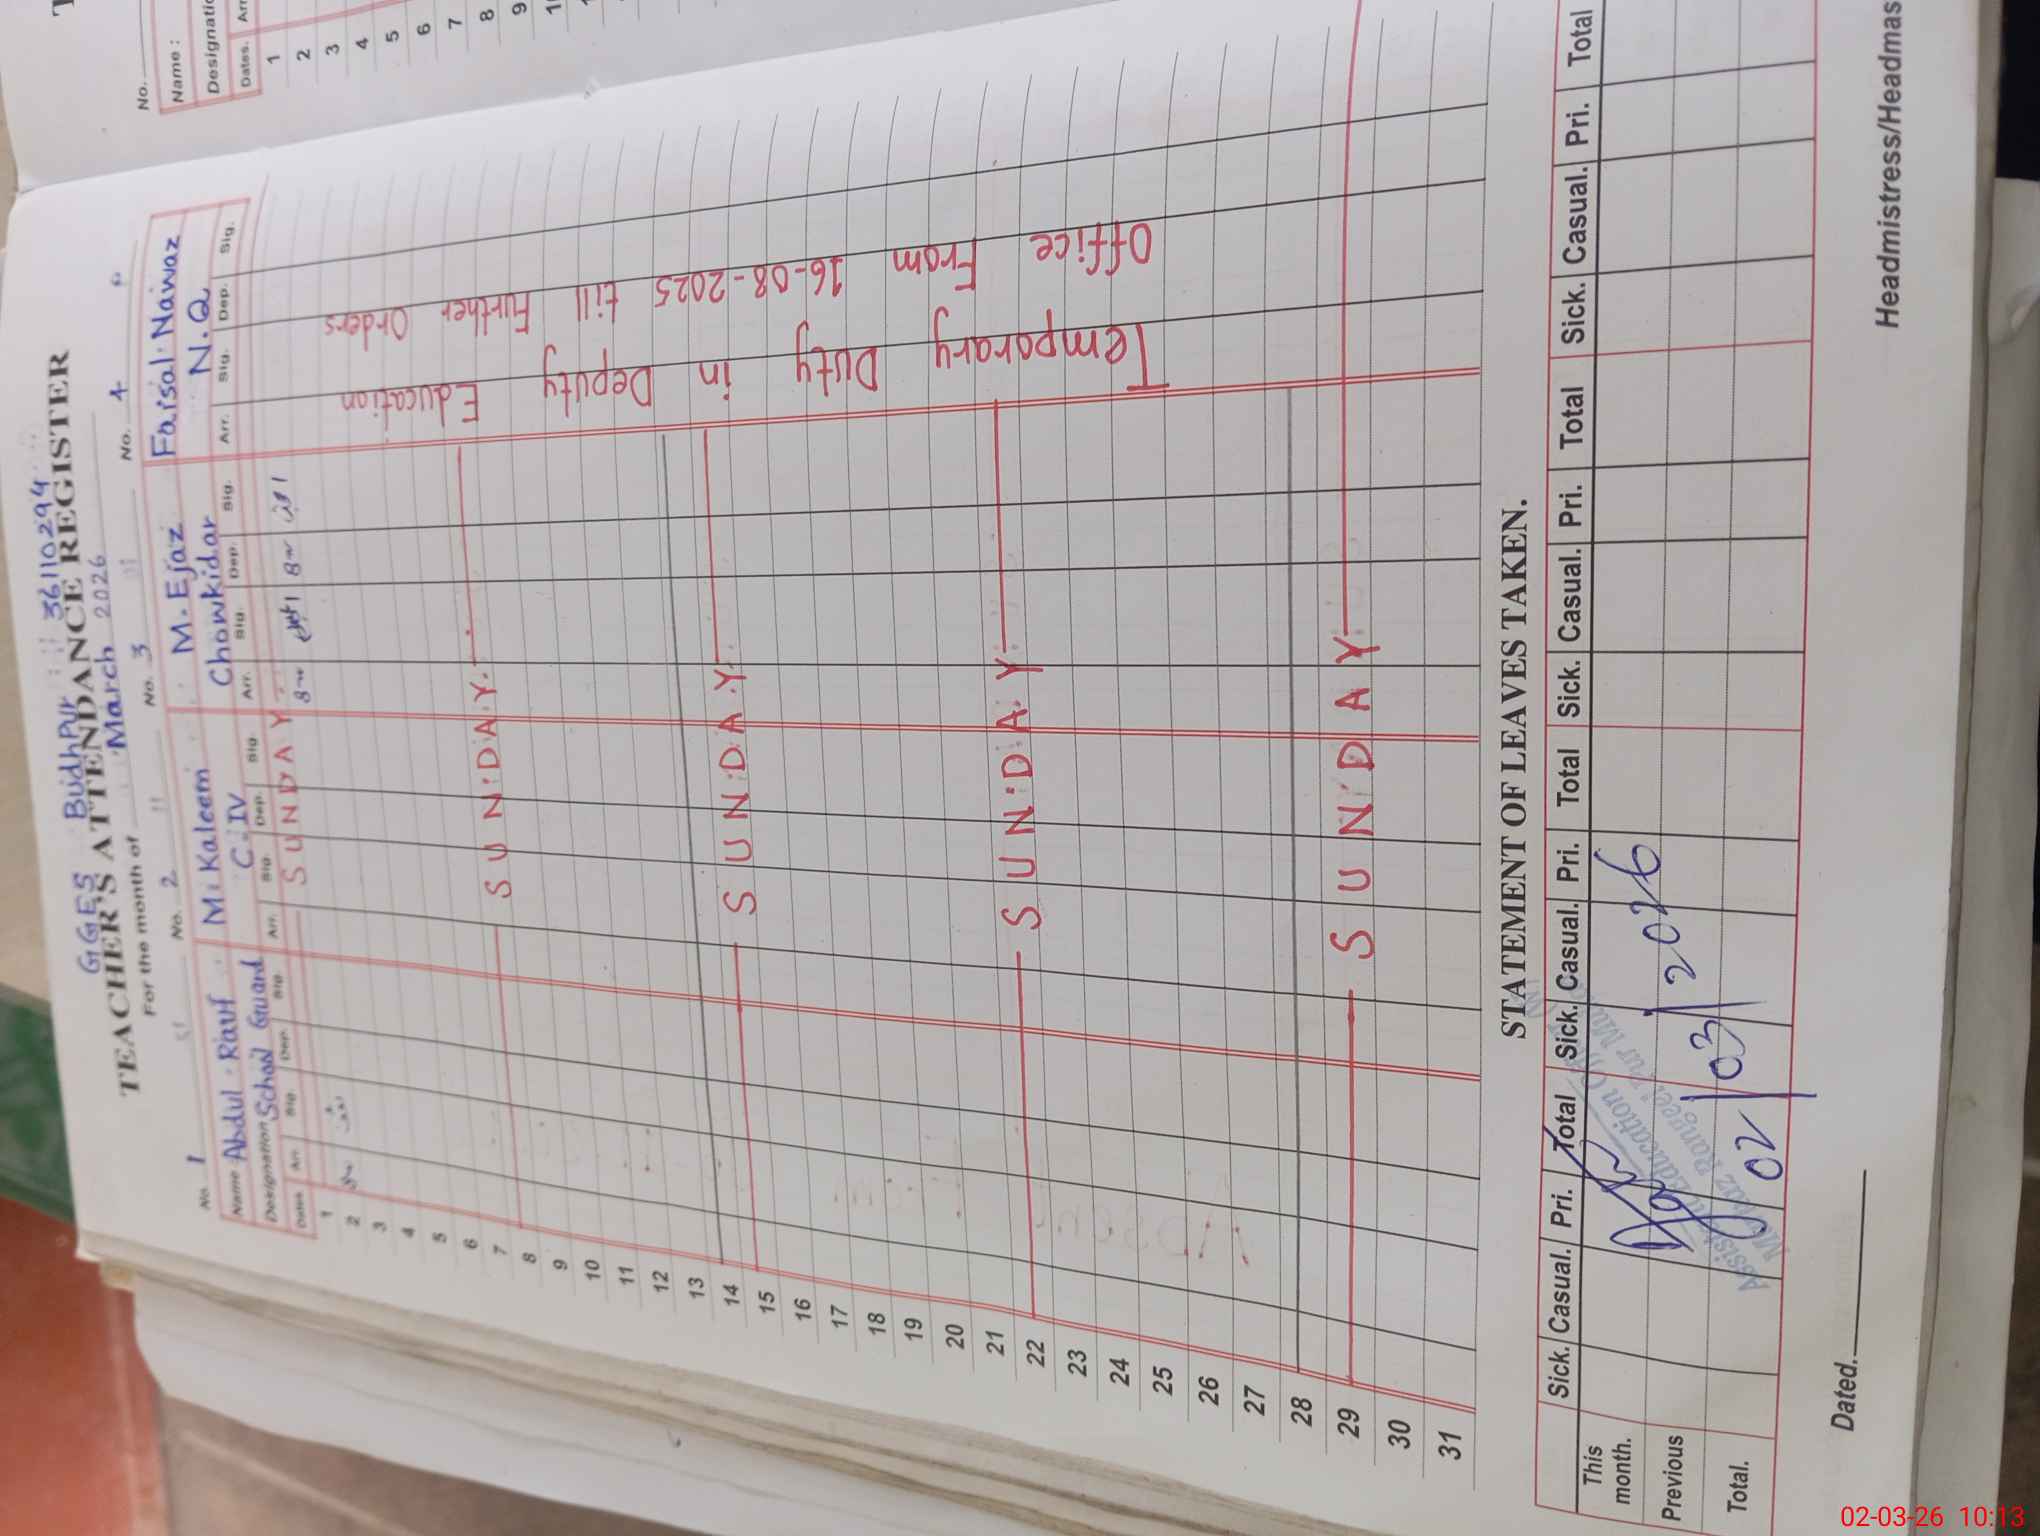 GGES Budhpur 36110294
TEACHER'S ATTENDANCE REGISTER
For the month of March 2026
No. 1 No. 2 No. 3 No. 4
Name Abdul Rauf M. Kaleem M. Ejaz Faisal Nawaz
Designation School Guard C.IV Chowkidar N.Q
Dates. Arr. Sig. Dep. Sig. Arr. Sig. Dep. Sig. Arr. Sig. Dep. Sig. Arr. Sig. Dep. Sig.
1 SUNDAY
2
3
4
5
6
7
8 SUNDAY
9
10
11
12
13
14
15 SUNDAY
16
17
18
19
20
21
22 SUNDAY
23
24
25
26
27
28
29 SUNDAY
30
31
Temporary Duty in Deputy Education
Office From 16-08-2025 till Further Orders
STATEMENT OF LEAVES TAKEN.
Sick. Casual. Pri. Total Sick. Casual. Pri. Total Sick. Casual. Pri. Total Sick. Casual. Pri. Total
This month.
Previous
Total.
02/03/2026
Dated.
Headmistress/Headmas
No.
Name :
Designatio
Dates. Arr
1
2
3
4
5
6
7
8
9
02-03-26 10:13